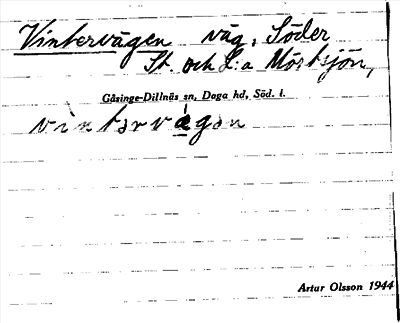 Vintervägen väg, Söder
St. och L:a Mörtsjön,
Gåsinge-Dillnäs sn, Daga hd, Söd. l.
vìntərvá̱gən
Artur Olsson 1944